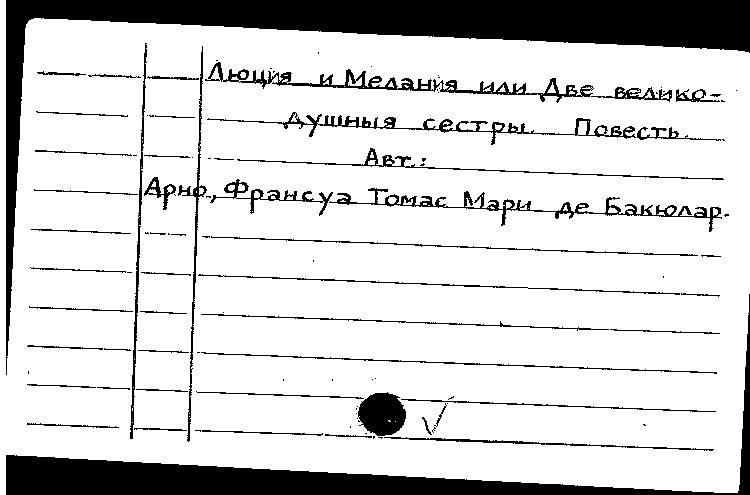 Люция и Мелания или Две велико-
душныя сестры. Повесть.
Авт.:
Арно, Франсуа Томас Мари де Бакюлар.